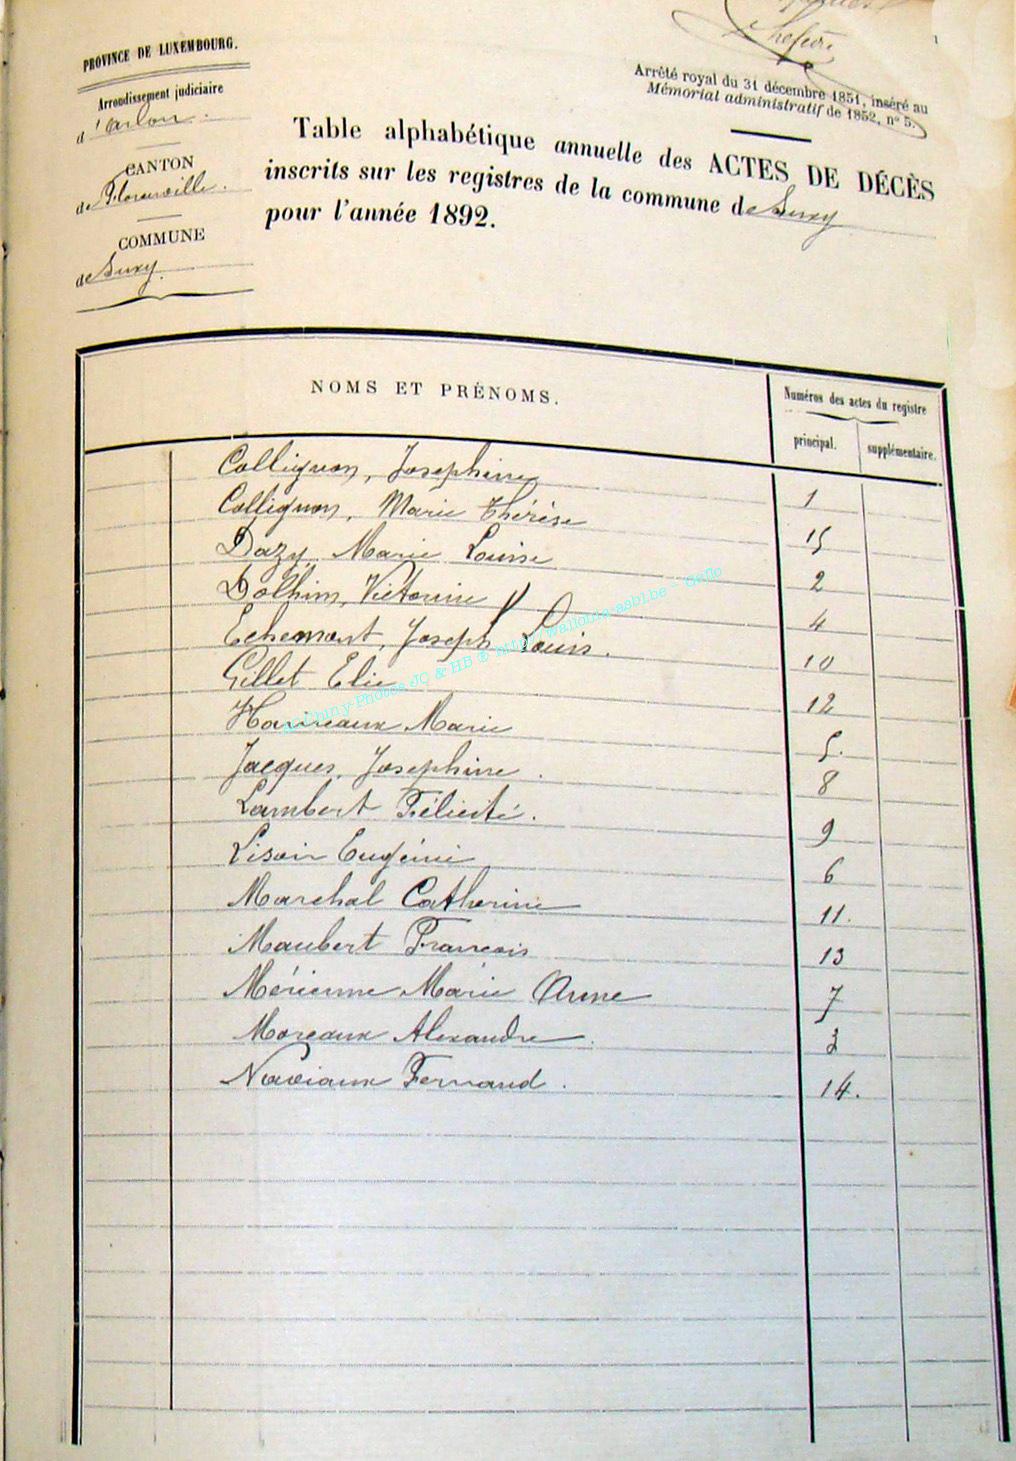 Arrêté royal du 31 décembre 1851, inséré au
Mémorial administratif de 1852, n° 5.
PROVINCE DE LUXEMBOURG.
Arrondissement judiciaire
d'Arlon.
CANTON
de Florenville.
COMMUNE
de Suxy.
Table alphabétique annuelle des ACTES DE DÉCÈS
inscrits sur les registres de la commune de Suxy
pour l'année 1892.
NOMS ET PRÉNOMS.
Numéros des actes du registre
principal. supplémentaire.
Collignon, Josephine 1
Collignon, Marie Thérèse 15
Dazy, Marie Louise 2
Dolhim, Victorine 4
Echement, Joseph Louis. 10
Gillet Elie 12
Marie 5.
Jacques, Josephine. 8
Lambert Félicité. 9
Lisoir Eugénie 6
Marchal Catherine 11.
Maubert François 13
Mérienne Marie Anne 7
Moreaux Alexandre. 3
Naviaux Fernand. 14.
Chiny-Photos JC & HB ® http://wallonia-asbl.be - Geflo